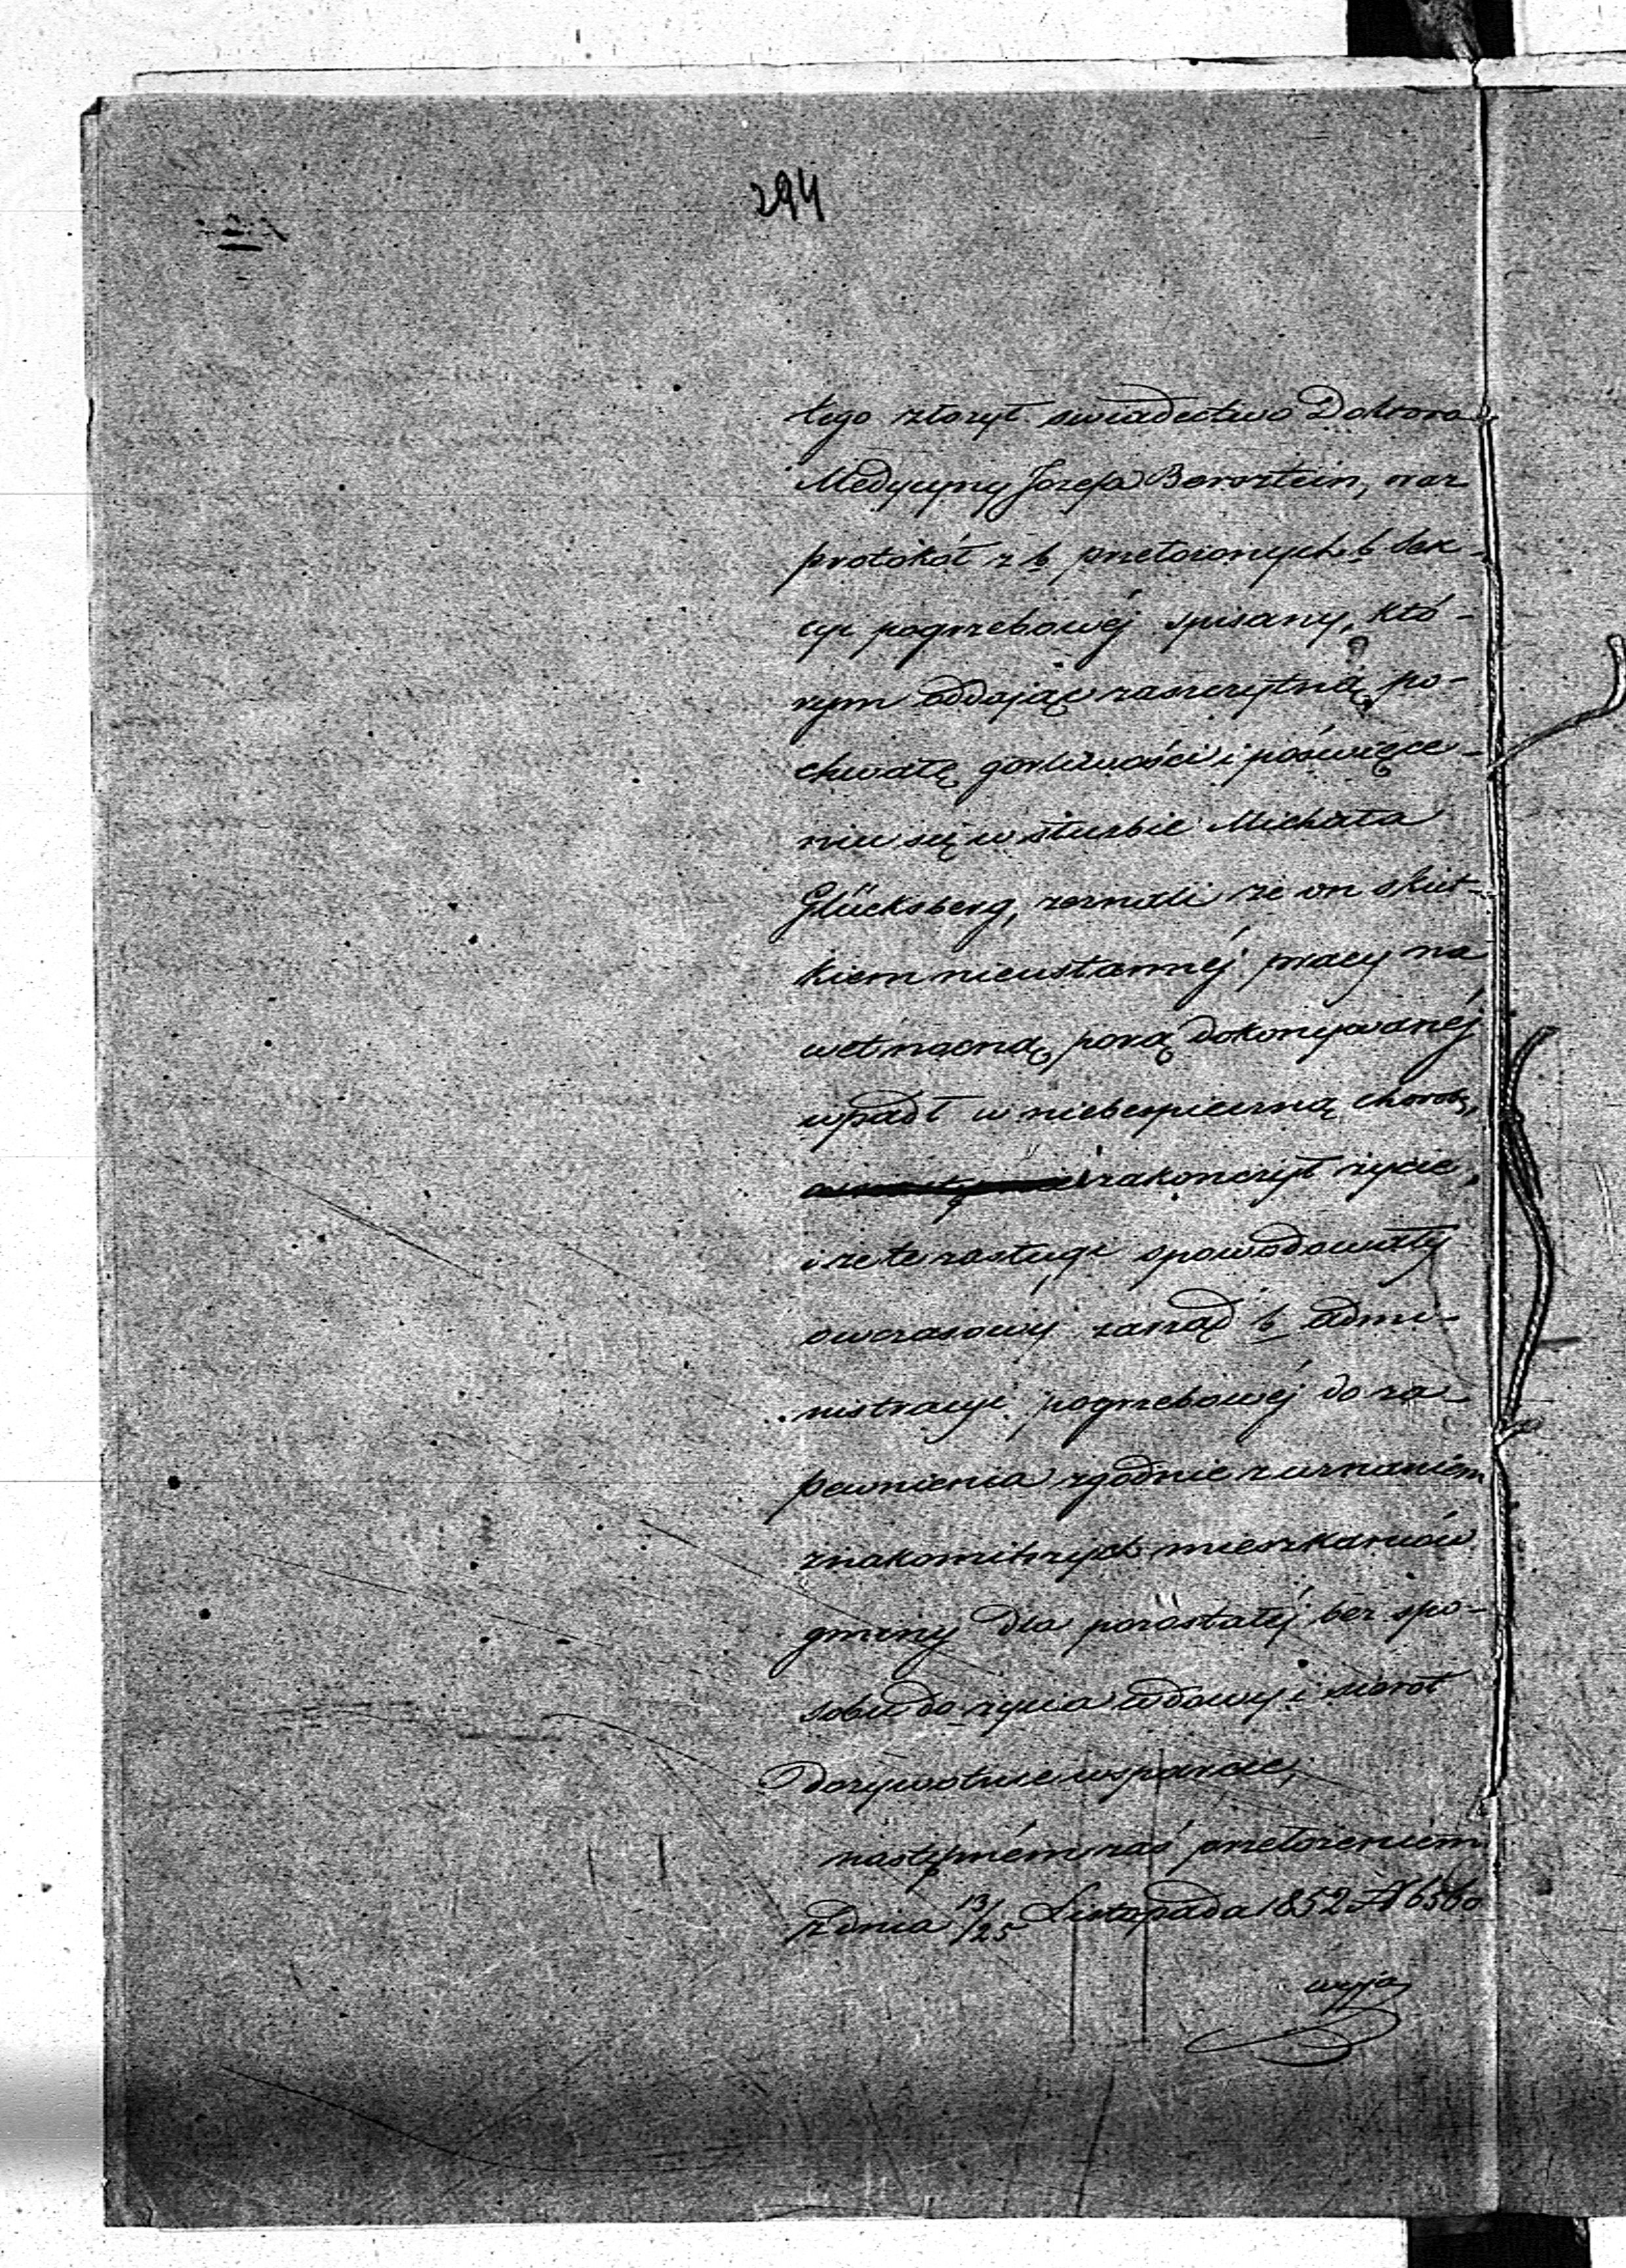 294
tego złożył swiadectwo Doktora
Medycyny Józefa Bersztein, oraz
protokół z b. przełożonych b. sek-
cyi pogrzebowéj spisany, któ-
rym oddając zaszczytną po-
chwałę gorliwości i poświęce-
niu się w służbie Michała
Glücksberg, zeznali że on skut-
kiem nieustannéj pracy na
wet nocną porą dokonywanéj
wpadł w niebezpieczną chorobę,
i zakończył życie,
i że te zasługi spowodowały
owczasowy zarząd b. admi-
nistracyi pogrzebowéj do za-
pewnienia zgodnie z uznaniem
znakomitszych mieszkańców
gminy dla pozostałéj bez spo-
sobu do życia wdowy i sierot
dożywotnie wsparcie,
następném zaś przełożeniem
z dnia 13/25 Listopada 1852 N 6560
wyja